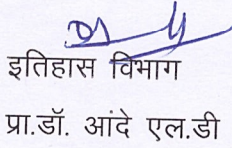 इतिहास विभाग
प्रा.डॉ. आंदे एल.डी